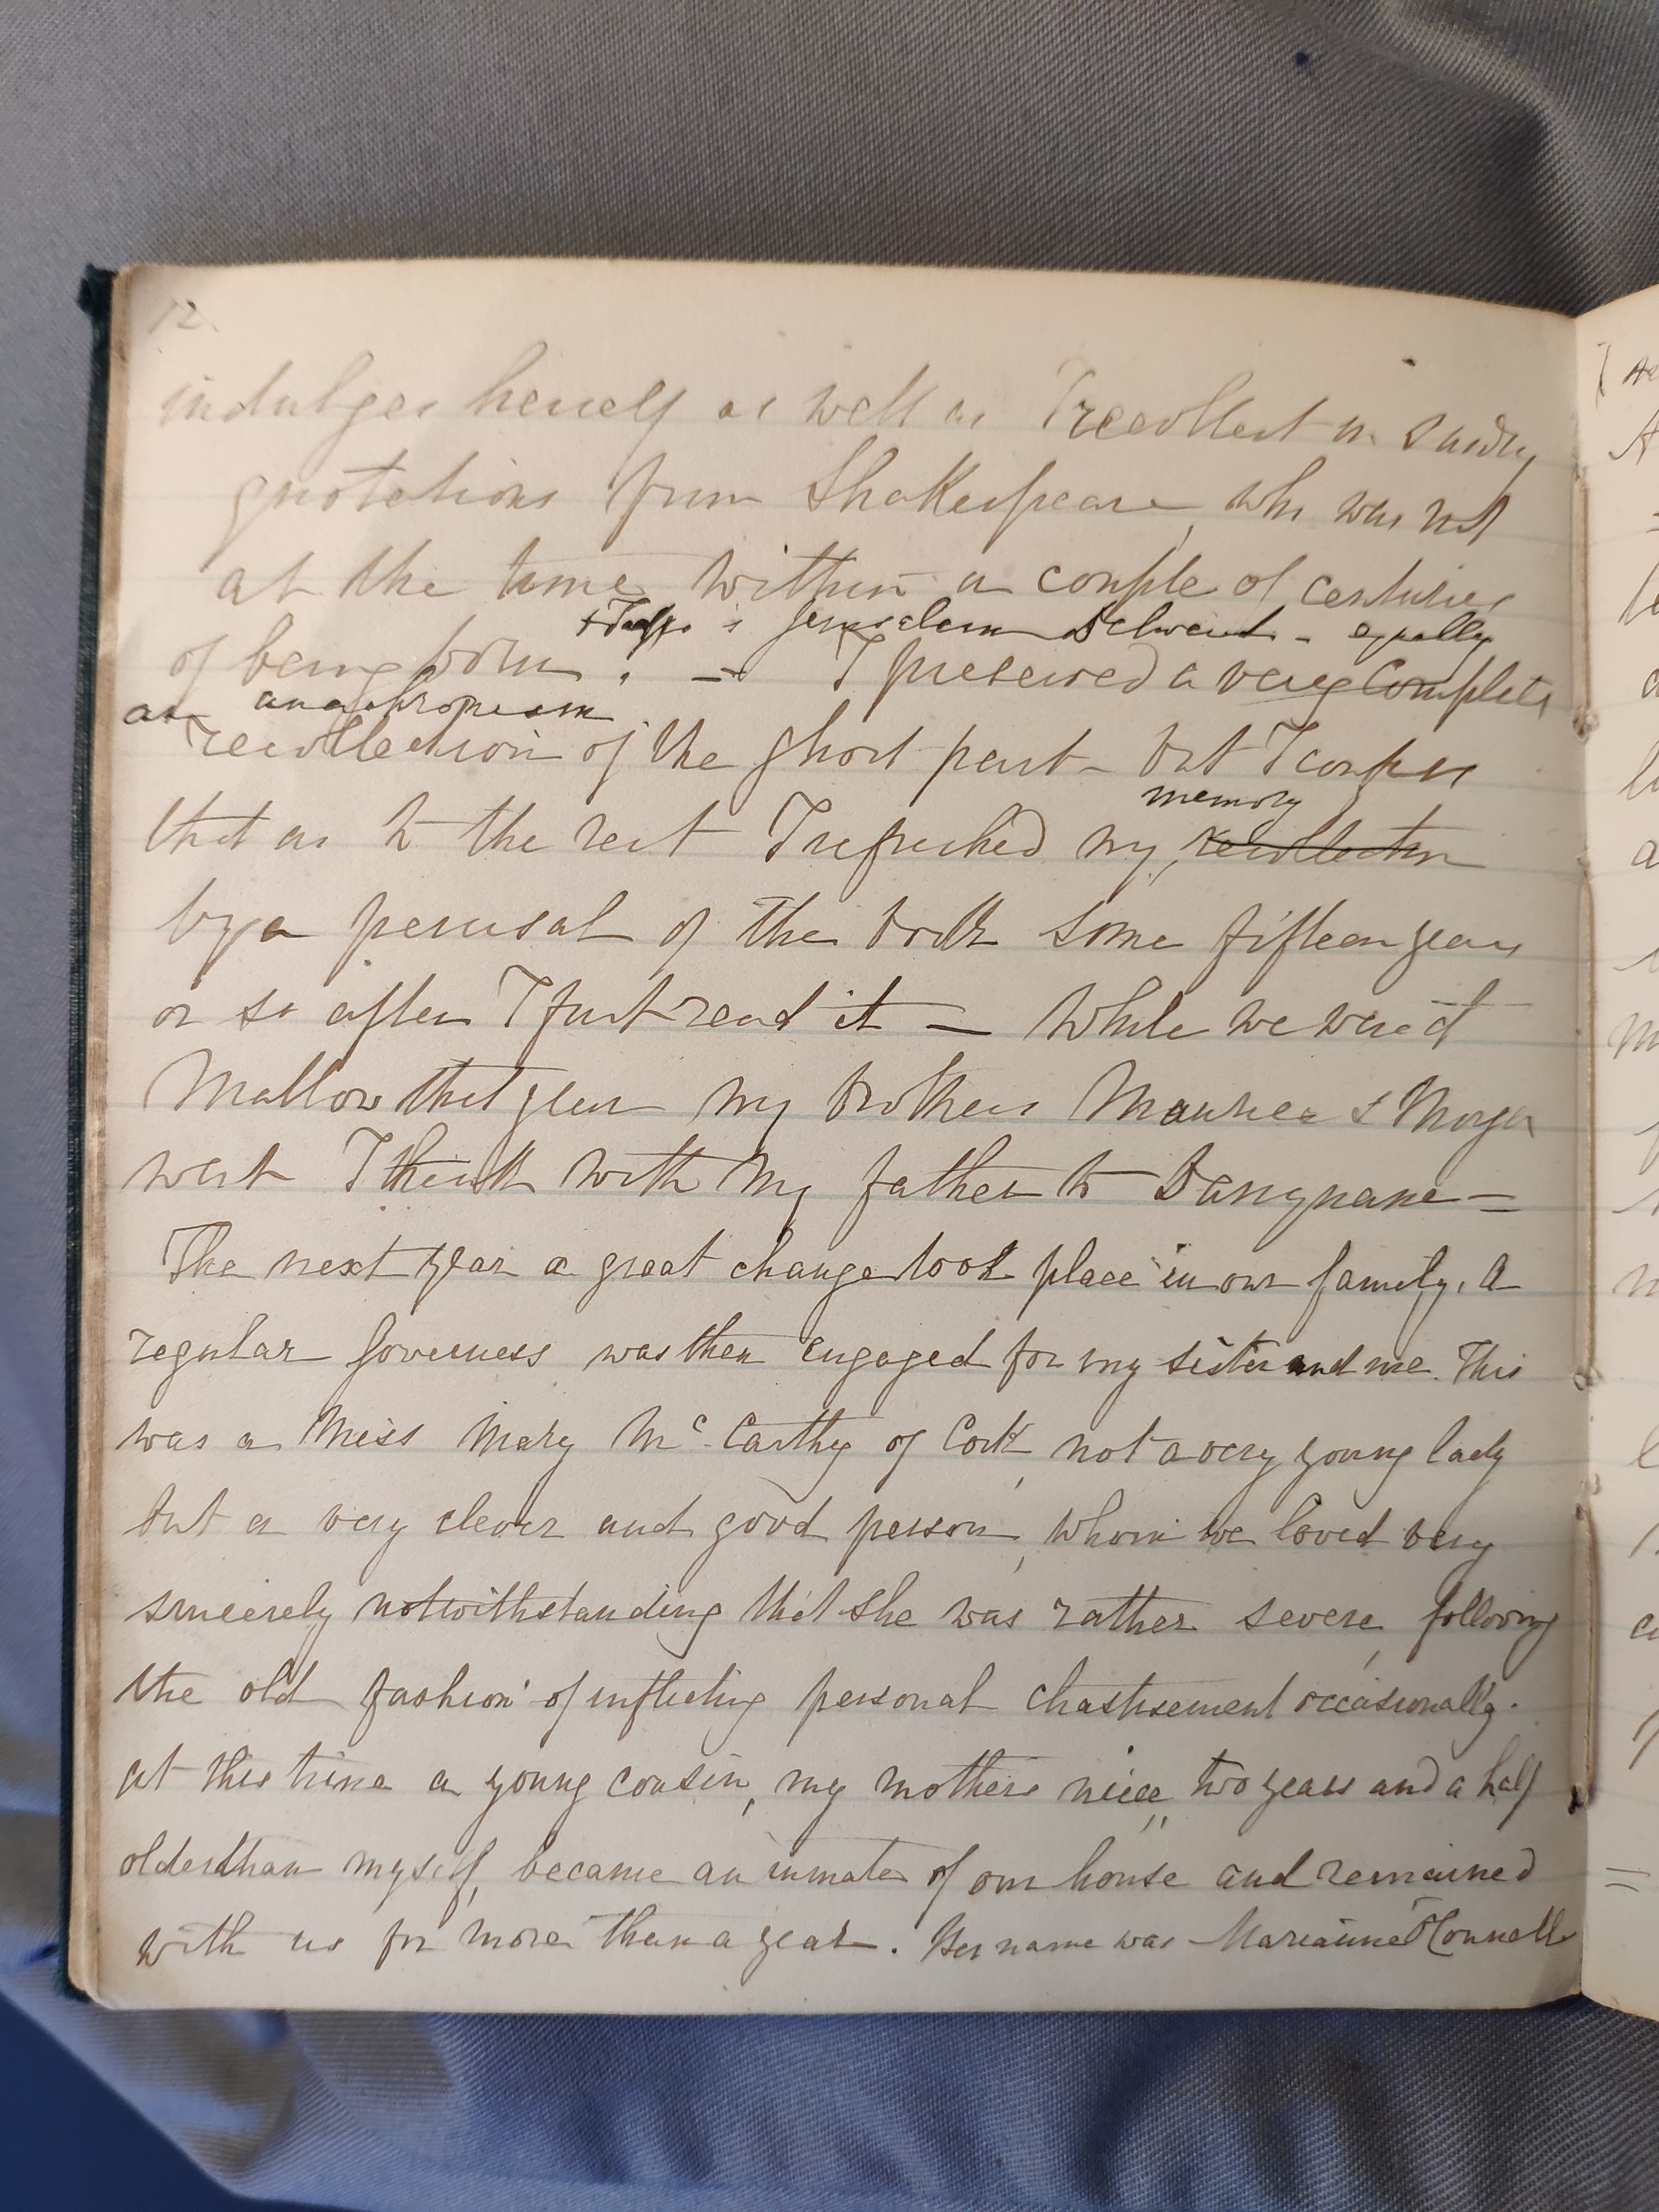 12.
indulges herself as well as I recollect in sundry
quotations from Shakespeare, who was not
at the time within a couple of centuries
+ Tasso's Jerusalem Delivered - equally
of being born! — I preserved a very complete
an anachronism
recollection of the ghost part - but I confess
memory
that as to the rest I refreshed my, recollection
by a perusal of the book some fifteen years
or so after I first read it — While we were at
Mallow that year my brothers Maurice & Morgan
went I think with my father to Darrynane =
The next year a great change took place in our family. A
regular Governess was then engaged for my sister and me. This
was a Miss Mary Mc. Carthy of Cork, not a very young lady
but a very clever and good person, whom we loved very
sincerely notwithstanding that she was rather severe, following
the old fashion of inflicting personal chastisement occasionally.
at this time a young cousin, my mothers niece, two years and a half
older than myself, became an inmate of our house and remained
with us for more than a year. Her name was Marianne O'Connell